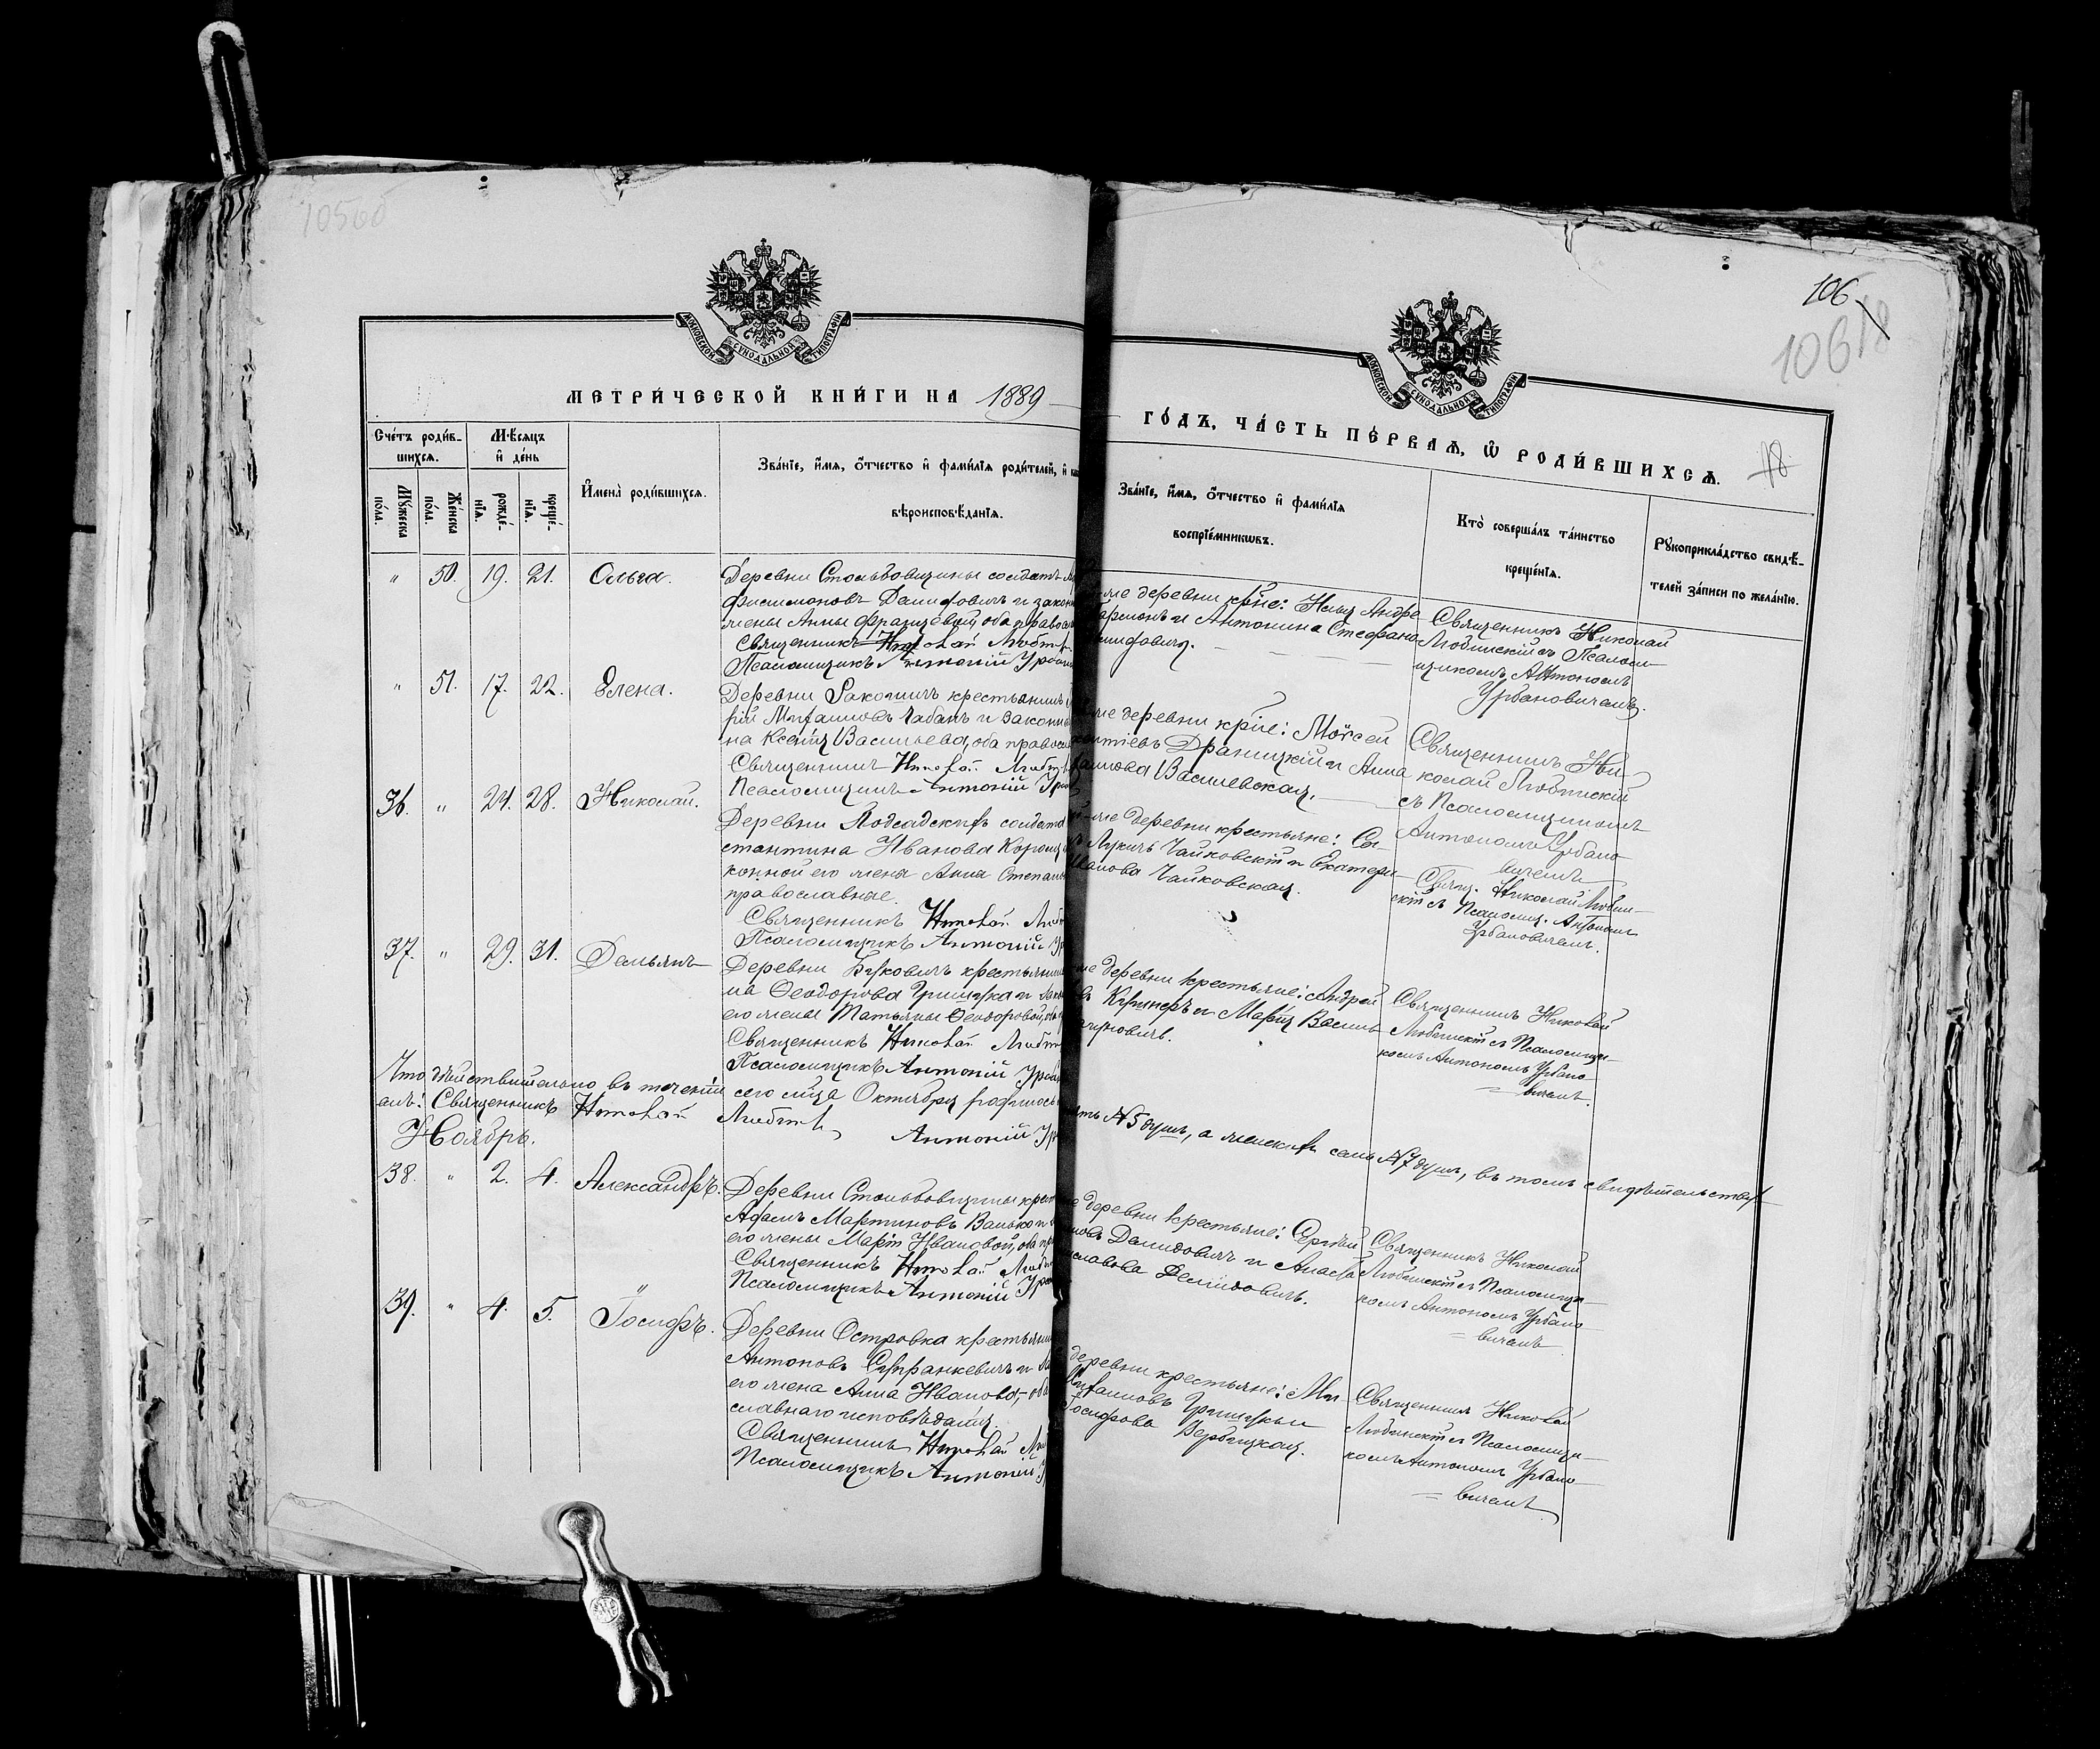 10500
106
10618
МОСКОВСКОЙ СѴНОДАЛЬНОЙ ТИПОГРАФІИ
МОСКОВСКОЙ СѴНОДАЛЬНОЙ ТИПОГРАФІИ
МЕТРИ́ЧЕСКОЙ КНИ́ГИ НА 1889
ГО́ДЪ, ЧА́СТЬ ПЕ́РВАѦ, Ѽ РОДИ́ВШИХСѦ.
18
Сче́тъ роди́в-
шихсѧ.
Мꙋжеска по́ла.
Же́нска по́ла.
Мѣ́сѧцъ и де́нь
рожде́-нїѧ.
креще́-нїѧ.
И҆мена̀ роди́вшихсѧ.
Зва́нїе, и҆́мѧ, ѻ҆́тчество и҆ фами́лїѧ роди́телей, и҆
вѣроисповѣ́данїѧ.
Зва́нїе, и҆́мѧ, ѻ҆́тчество и҆ фами́лїѧ
воспрїе́мникѡвъ.
Кто̀ соверша́лъ та́инство
креще́нїѧ.
Рꙋкоприкла́дство свидѣ́-
телей за́писи по жела́нїю.
" 50. 19. 21. Ольга.
Деревни Стольбовщины солдатъ
Филимоновъ Демидовичъ и закон
жены Анны Францевой, оба правосл
Священникъ Николай Любин
Псаломщикъ Антоній Урбан
деревни кр̃не: Илья Андре
и Антонина Стефано
Демидовичъ.
Священникъ Николай
Любинскій съ Псалом-
щикомъ Антономъ
Урбановичемъ.
" 51. 17. 22. Елена.
крестьянинъ
рій Михаиловъ Чабанъ и законн
на Ксенія Васильева, оба правосл
Священникъ Николай Любин
Псаломщикъ Антоній Урб
деревни кр̃не: Мойсей
Драницкій и Анна
Василевская.
Священникъ Ни-
колай Любинскій
съ Псаломщикомъ
Антономъ Урбано-
вичемъ
36. " 24. 28. Николай.
Деревни Лядсадскихъ солдата
стантина Иванова
конной его жена Анна Степан
православные.
Священникъ Николай Люб
Псаломщикъ Антоній Ур
деревни крестьяне: Си-
Лукичъ Чайковскій и Екатери-
Иванова Чайковская.
Свящ. Николай Любин-
скій съ Псаломщ. Антоном
Урбановичемъ.
37. " 29. 31. Демьянъ
Деревни Буковичъ крестьянин
на Ѳеодорова Гришука и зак
его жены Татьяны Ѳеодоровой, оба
Священникъ Николай Любин
Псаломщикъ Антоній Урба
деревни крестьяне: Андрей
и Марія Василь
Священникъ Николай
Любинскій съ Псаломщи-
комъ Антономъ Урбано-
= вичемъ.
Что дѣйствительно въ теченіи сего м̃ца Октября родилось
5 душъ, а женскихъ семь № 7 душъ, въ томъ свидѣтельству-
емъ: Священникъ Николай Любин
Антоній Ур
Ноябрь.
38. " 2. 4. Александръ.
Деревни Стольбовщины крест
Адамъ Мартиновъ Ванько и
его жены Маріи Ивановой, оба пр
Священникъ Николай Люби
Псаломщикъ Антоній Урб
деревни крестьяне: Сергѣй
Демидовичъ и Анаста
Демидовичъ.
Священникъ Николай
Любинскій съ Псаломщи-
комъ Антономъ Урбано-
= вичемъ
39. " 4. 5. Іосифъ.
Деревни Островка крестьянин
Антоновъ Супранкевичъ и за
его жена Анна Иванова, оба
славнаго исповѣданія.
Священникъ Николай Лю
Псаломщикъ Антоній У
деревни крестьяне: Ми
Михаиловъ Гришукъ и
Іосифова Вербицкая.
Священникъ Николай
Любинскій съ Псаломщи-
комъ Антономъ Урбано-
= вичемъ